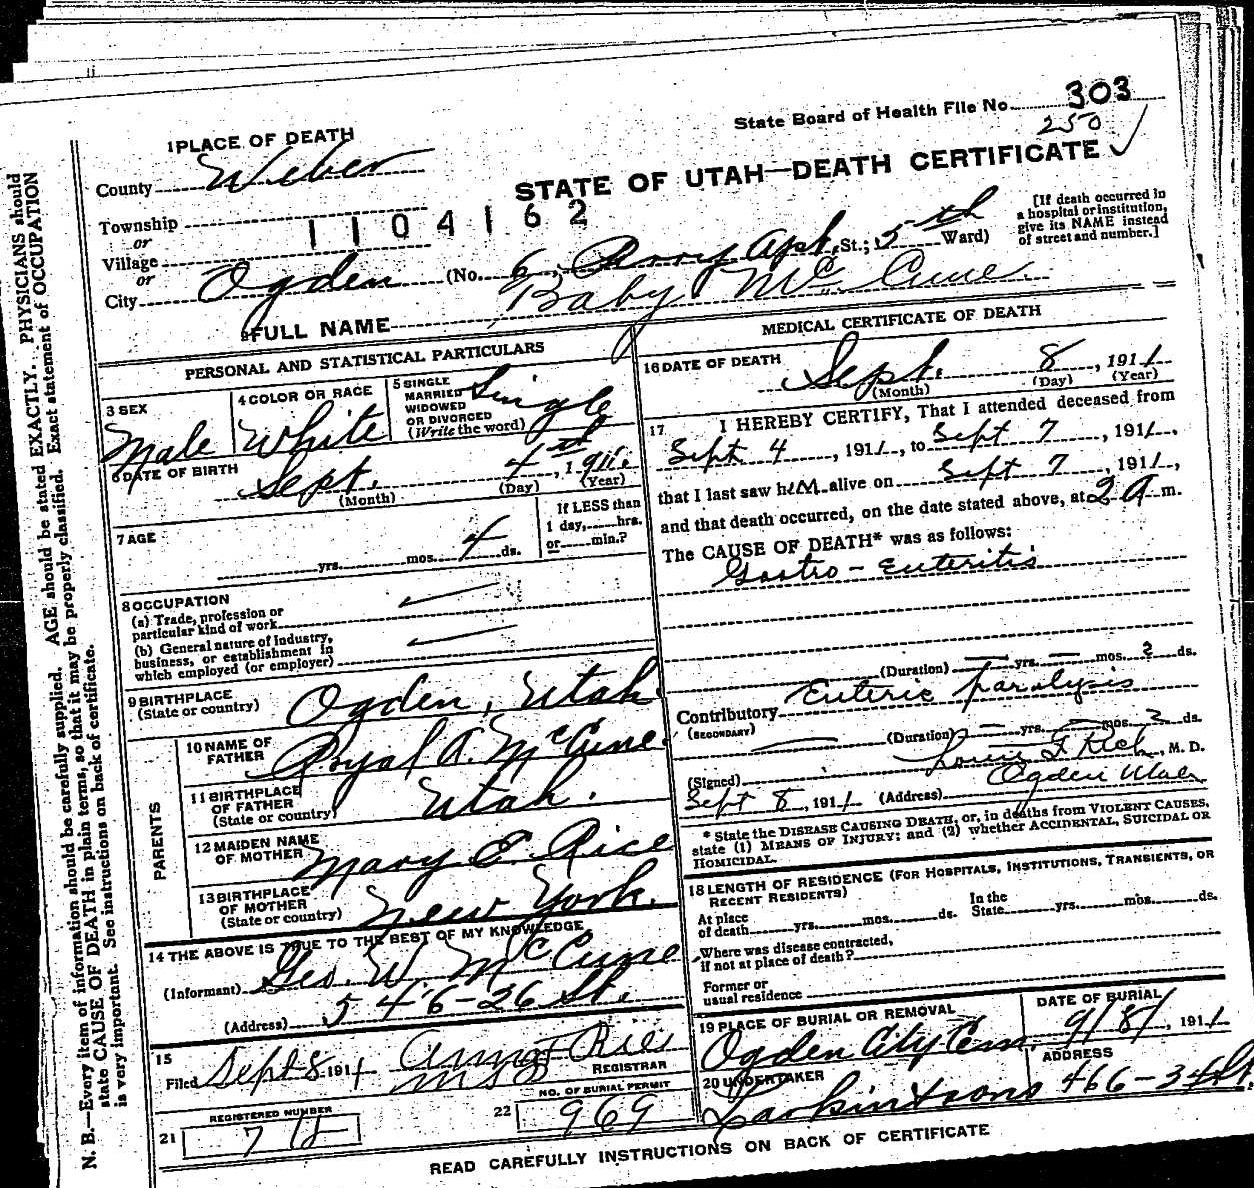 State Board of Health File No. 303
250
1 PLACE OF DEATH
STATE OF UTAH—DEATH CERTIFICATE
County Weber
Township
or
1104162
Village
or
City Ogden (No. 6, Apt. St.; 5th Ward)
[If death occurred in
a hospital or institution,
give its NAME instead
of street and number.]
2 FULL NAME Baby McCune.
PERSONAL AND STATISTICAL PARTICULARS
3 SEX
Male
4 COLOR OR RACE
White
5 SINGLE
MARRIED
WIDOWED
OR DIVORCED
(Write the word)
Single
6 DATE OF BIRTH
Sept. 4th, 1911.
(Month) (Day) (Year)
7 AGE
yrs. mos. 4 ds.
If LESS than
1 day, hrs.
or min.?
8 OCCUPATION
(a) Trade, profession or
particular kind of work
(b) General nature of industry,
business, or establishment in
which employed (or employer)
9 BIRTHPLACE
(State or country)
Ogden, Utah.
PARENTS
10 NAME OF
FATHER
Royal A. McCune.
11 BIRTHPLACE
OF FATHER
(State or country)
Utah.
12 MAIDEN NAME
OF MOTHER
Mary E. Rice
13 BIRTHPLACE
OF MOTHER
(State or country)
New York.
14 THE ABOVE IS TRUE TO THE BEST OF MY KNOWLEDGE
(Informant) Geo. W. McCune
(Address) 546-26 St.
15
Filed Sept 8 1911
REGISTRAR
21 REGISTERED NUMBER
22 NO. OF BURIAL PERMIT
969
MEDICAL CERTIFICATE OF DEATH
16 DATE OF DEATH
Sept. 8, 1911
(Month) (Day) (Year)
17 I HEREBY CERTIFY, That I attended deceased from
Sept 4, 1911, to Sept 7, 1911,
that I last saw him alive on Sept 7, 1911,
and that death occurred, on the date stated above, at 2 A m.
The CAUSE OF DEATH* was as follows:
Gastro-Enteritis
(Duration) — yrs. — mos. 2 ds.
Contributory Enteric paralysis
(SECONDARY)
(Duration) — yrs. — mos. 2 ds.
(Signed) Rich, M. D.
Sept 8, 1911 (Address) Ogden Utah
* State the DISEASE CAUSING DEATH, or, in deaths from VIOLENT CAUSES,
state (1) MEANS OF INJURY; and (2) whether ACCIDENTAL, SUICIDAL OR
HOMICIDAL.
18 LENGTH OF RESIDENCE (FOR HOSPITALS, INSTITUTIONS, TRANSIENTS, OR
RECENT RESIDENTS)
At place
of death yrs. mos. ds.
In the
State yrs. mos. ds.
Where was disease contracted,
if not at place of death?
Former or
usual residence
19 PLACE OF BURIAL OR REMOVAL
Ogden City Cem
DATE OF BURIAL
9/8/, 1911
20 UNDERTAKER
Larkin & sons
ADDRESS
466-24 St.
READ CAREFULLY INSTRUCTIONS ON BACK OF CERTIFICATE
N. B.—Every item of information should be carefully supplied. AGE should be stated EXACTLY. PHYSICIANS should
state CAUSE OF DEATH in plain terms, so that it may be properly classified. Exact statement of OCCUPATION
is very important. See instructions on back of certificate.